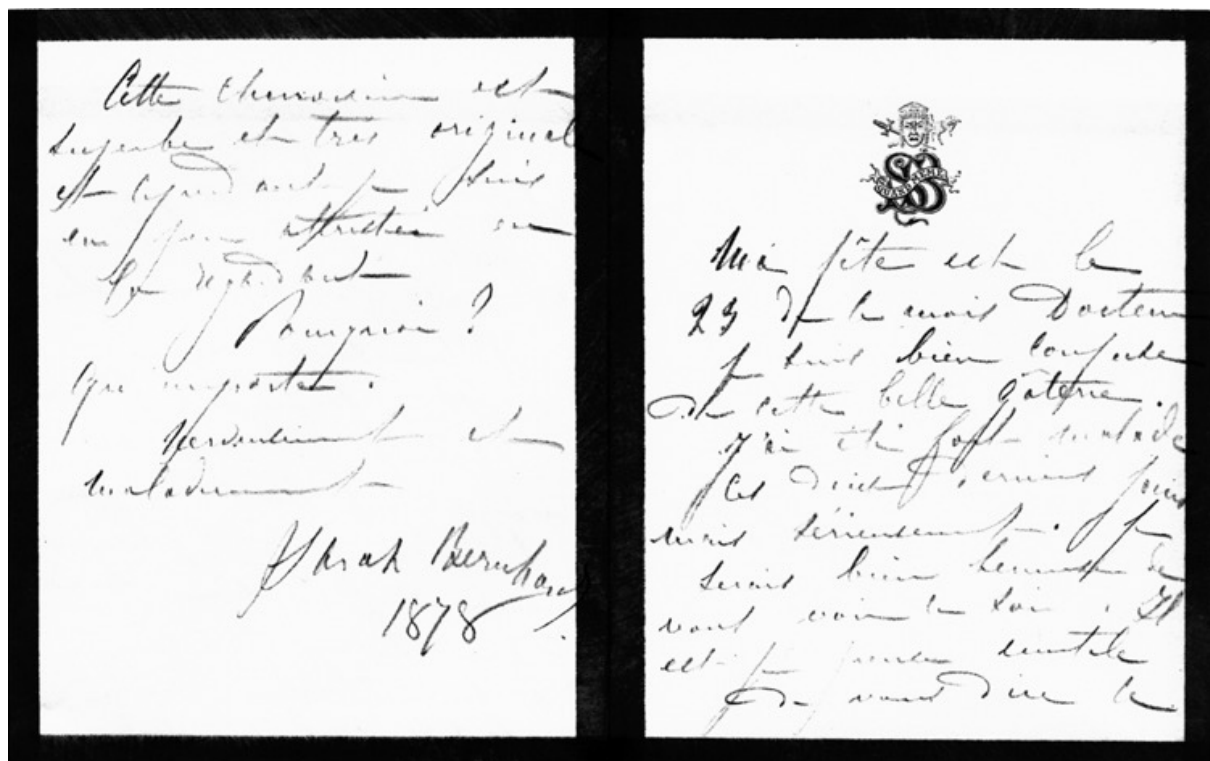 Cette est
superbe et très original
et cependant je suis
un peu attristée en
regardant
Pourquoi ?
Qu'importe.
et
maladivement
Sarah Bernhardt
1878
SB
QUAND MEME
Ma fête est le
23 de ce mois Docteur
je suis bien confuse
de cette belle gâterie.
J'ai été fort malade
ces derniers jours
mais sérieusement. Je
serais bien heureuse de
vous voir ce soir. Il
est je pense inutile
de vous dire le